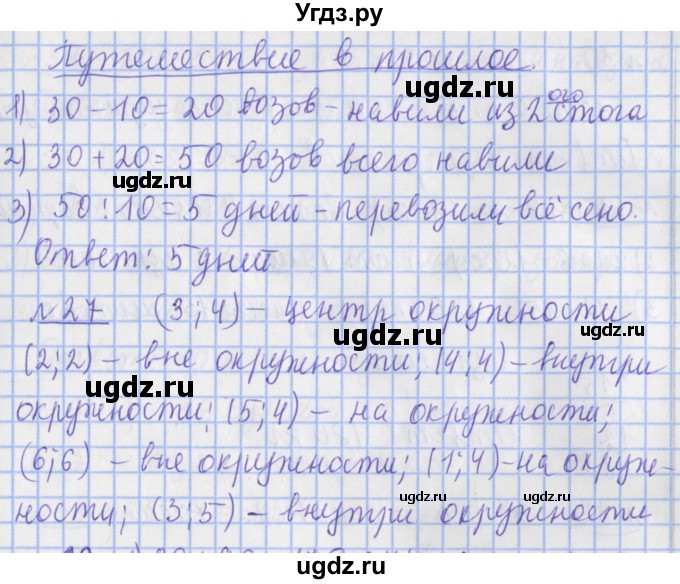 Угдз.ру
Путешествие в прошлое.
1) 30 - 10 = 20 возов - навили из 2ого стога
2) 30 + 20 = 50 возов всего навили
gdz.ru
3) 50 : 10 = 5 дней - перевозили всё сено.
gdz.ru
Ответ: 5 дней
№27 (3;4) - центр окружности
gdz.ru
(2;2) - вне окружности; (4;4) - внутри
окружности; (5;4) - на окружности;
(6;6) - вне окружности; (1;4) - на окруж-
gdz.ru
gdz.ru
ности; (3;5) - внутри окружности
gdz.ru
Угдз.ру